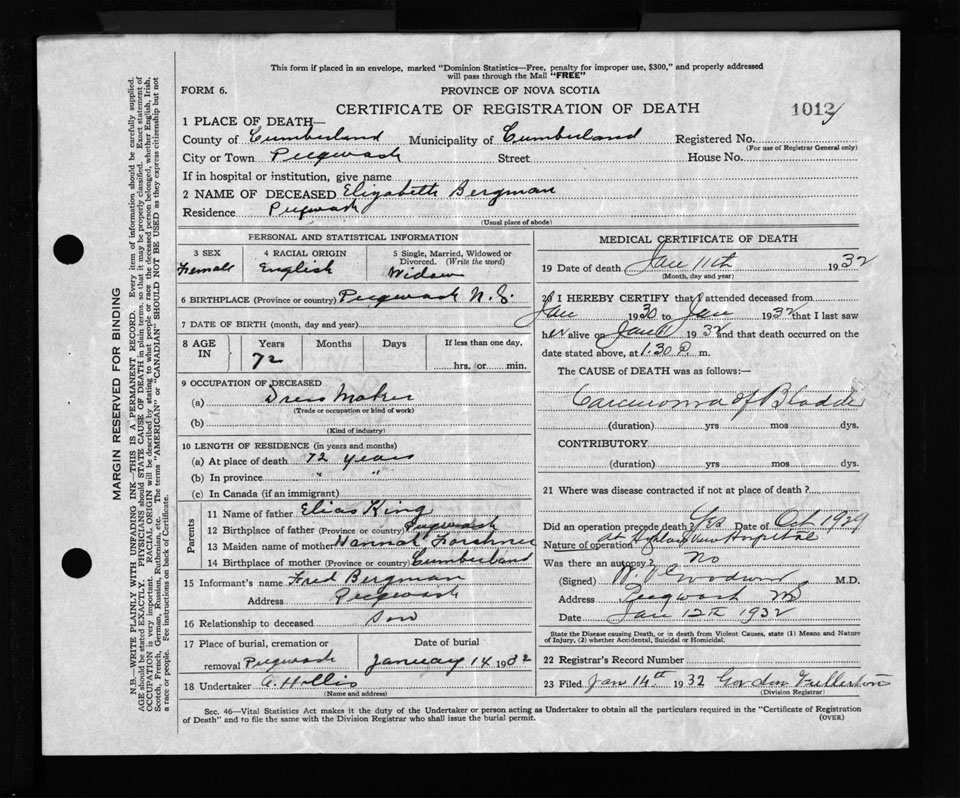 This form if placed in an envelope, marked "Dominion Statistics—Free, penalty for improper use, $300," and properly addressed
will pass through the Mail "FREE"
FORM 6.
PROVINCE OF NOVA SCOTIA
CERTIFICATE OF REGISTRATION OF DEATH
1012
1 PLACE OF DEATH—
County of Cumberland Municipality of Cumberland Registered No.
(For use of Registrar General only)
City or Town Pugwash Street House No.
If in hospital or institution, give name
2 NAME OF DECEASED Elizabeth Bergman
Residence Pugwash
(Usual place of abode)
PERSONAL AND STATISTICAL INFORMATION
3 SEX
Female
4 RACIAL ORIGIN
English
5 Single, Married, Widowed or
Divorced. (Write the word)
Widow
6 BIRTHPLACE (Province or country) Pugwash N.S.
7 DATE OF BIRTH (month, day and year)
8 AGE
IN
Years
72
Months
Days
If less than one day,
hrs. (or) min.
9 OCCUPATION OF DECEASED
(a) Dress Maker
(Trade or occupation or kind of work)
(b)
(Kind of industry)
10 LENGTH OF RESIDENCE (in years and months)
(a) At place of death 72 years
(b) In province " "
(c) In Canada (if an immigrant)
Parents
11 Name of father Elias King
12 Birthplace of father (Province or country) Pugwash
13 Maiden name of mother Hannah
14 Birthplace of mother (Province or country) Cumberland
15 Informant's name Fred Bergman
Address Pugwash
16 Relationship to deceased son
17 Place of burial, cremation or
removal Pugwash
Date of burial
January 14 1932
18 Undertaker A. Hollis
(Name and address)
MEDICAL CERTIFICATE OF DEATH
19 Date of death Jan 11th 1932
(Month, day and year)
20 I HEREBY CERTIFY that I attended deceased from
Jan 1930 to Jan 1932 that I last saw
her alive on Jan 11 1932 and that death occurred on the
date stated above, at 1.30 P. m.
The CAUSE of DEATH was as follows:—
Carcinoma of Bladder
(duration) yrs mos dys.
CONTRIBUTORY
(duration) yrs mos dys.
21 Where was disease contracted if not at place of death?
Did an operation precede death? Yes Date of Oct 1929
Nature of operation at Highland View Hospital
Was there an autopsy? No
(Signed) M.D.
Address Pugwash
Date Jan 12th 1932
State the Disease causing Death, or in death from Violent Causes, state (1) Means and Nature
of Injury, (2) whether Accidental, Suicidal or Homicidal.
22 Registrar's Record Number
23 Filed Jan 14th 1932 Gordon Fullerton
(Division Registrar)
Sec. 46—Vital Statistics Act makes it the duty of the Undertaker or person acting as Undertaker to obtain all the particulars required in the "Certificate of Registration
of Death" and to file the same with the Division Registrar who shall issue the burial permit.
(OVER)
MARGIN RESERVED FOR BINDING
N.B.—WRITE PLAINLY WITH UNFADING INK—THIS IS A PERMANENT RECORD. Every item of information should be carefully supplied.
AGE should be stated EXACTLY. PHYSICIANS should STATE CAUSE OF DEATH in plain terms, so that it may be properly classified. Exact statement of
OCCUPATION is very important. RACIAL ORIGIN will be described by stating to what people or race the deceased person belonged, whether English, Irish,
Scotch, French, German, Russian, Ruthenian, etc. The terms "AMERICAN" or "CANADIAN" SHOULD NOT BE USED as they express citizenship but not
a race or people. See instructions on back of Certificate.